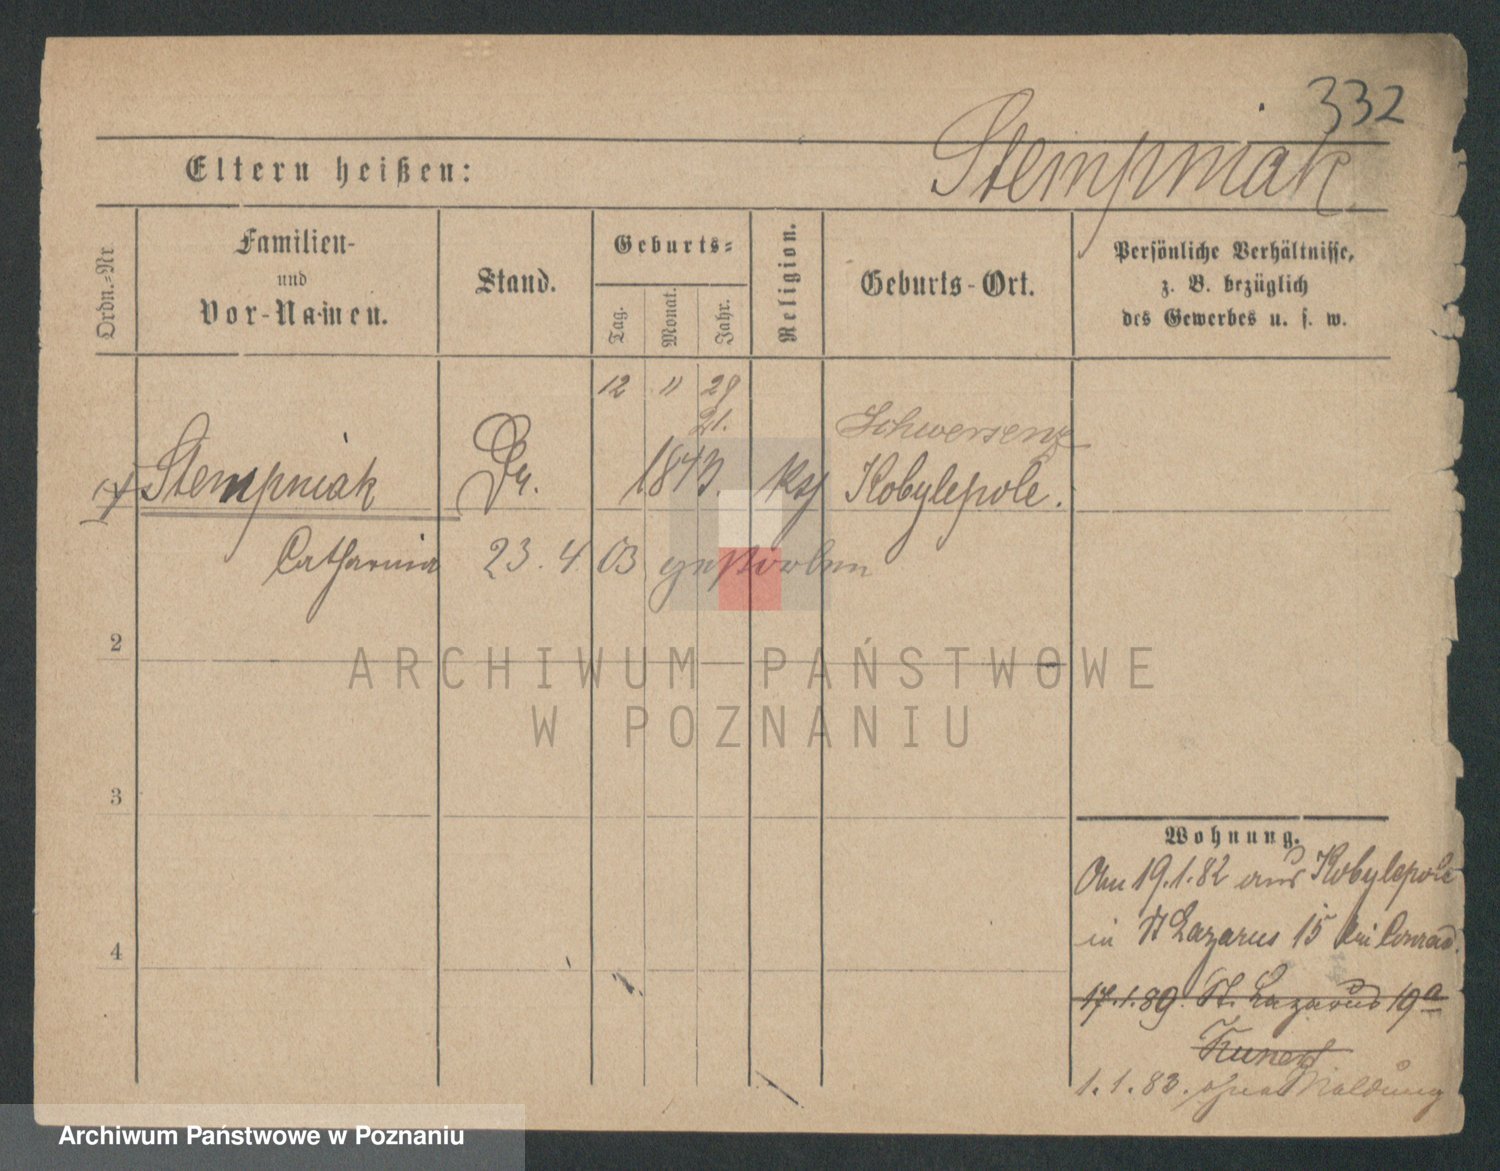 332
Stempniak
Eltern heißen:
Ordn.-Nr.
Familien-
und
Vor-Namen.
Stand.
Geburts-
Tag.
Monat.
Jahr.
Religion.
Geburts-Ort.
Persönliche Verhältnisse,
z. B. bezüglich
des Gewerbes u. s. w.
12 " 28
21.
Schwersenz
Stempniak 1873 Kobylepole.
Catharina 23. 4. 03 gestorben
2
ARCHIWUM PAŃSTWOWE
W POZNANIU
3
Wohnung.
19.1.82 aus Kobylepole
4
in St Lazarus 15 bei Conrad.
17.1.89. St. Lazarus 19a
1.1.83. ohne Meldung
Archiwum Państwowe w Poznaniu